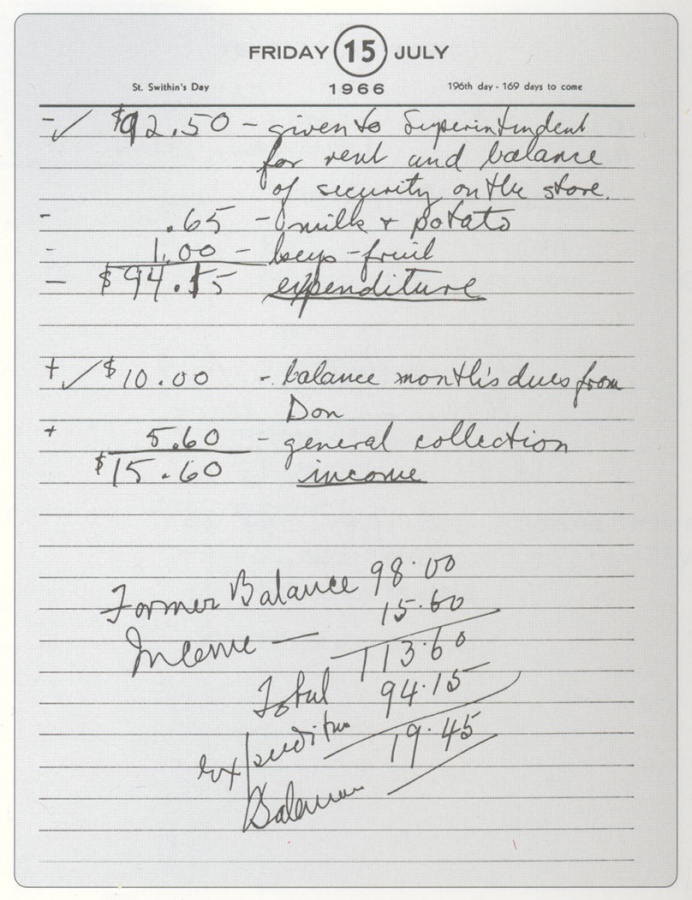 FRIDAY 15 JULY
St. Swithin's Day 1966 196th day - 169 days to come
-✓ $92.50 - given to Superintendent
for rent and balance
of security on the store.
- .65 - milk + potato
- 1.00 - - fruit
- $94.15 expenditure
+✓ $10.00 - balance month's dues from
Don
+ 5.60 - general collection
$15.60 income
Former Balance 98.00
Income — 15.60
Total 113.60
expenditure 94.15
Balance 19.45